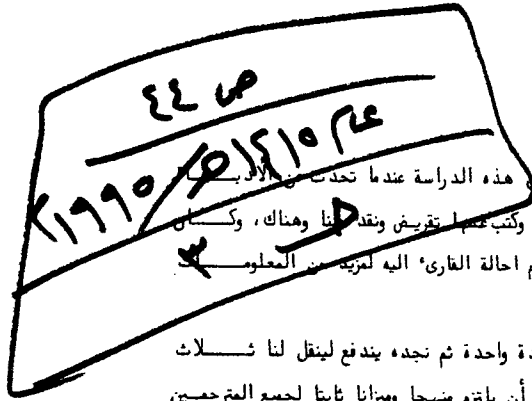 ص ٤٤
عام ١٤١٥ هـ / ١٩٩٥ م
هذه الدراسة عندما تحدث عن الأدبـــاء
وكتب عنها تقريض ونقد هنا وهناك ، وكـــان
احالة القارىء اليه لمزيد من المعلومـــات
حـ ٣
واحدة ثم نجده يندفع لينقل لنا ثـــلاث
أن يلتزم منهجا وميزانا ثابتا لجميع المترجمـين